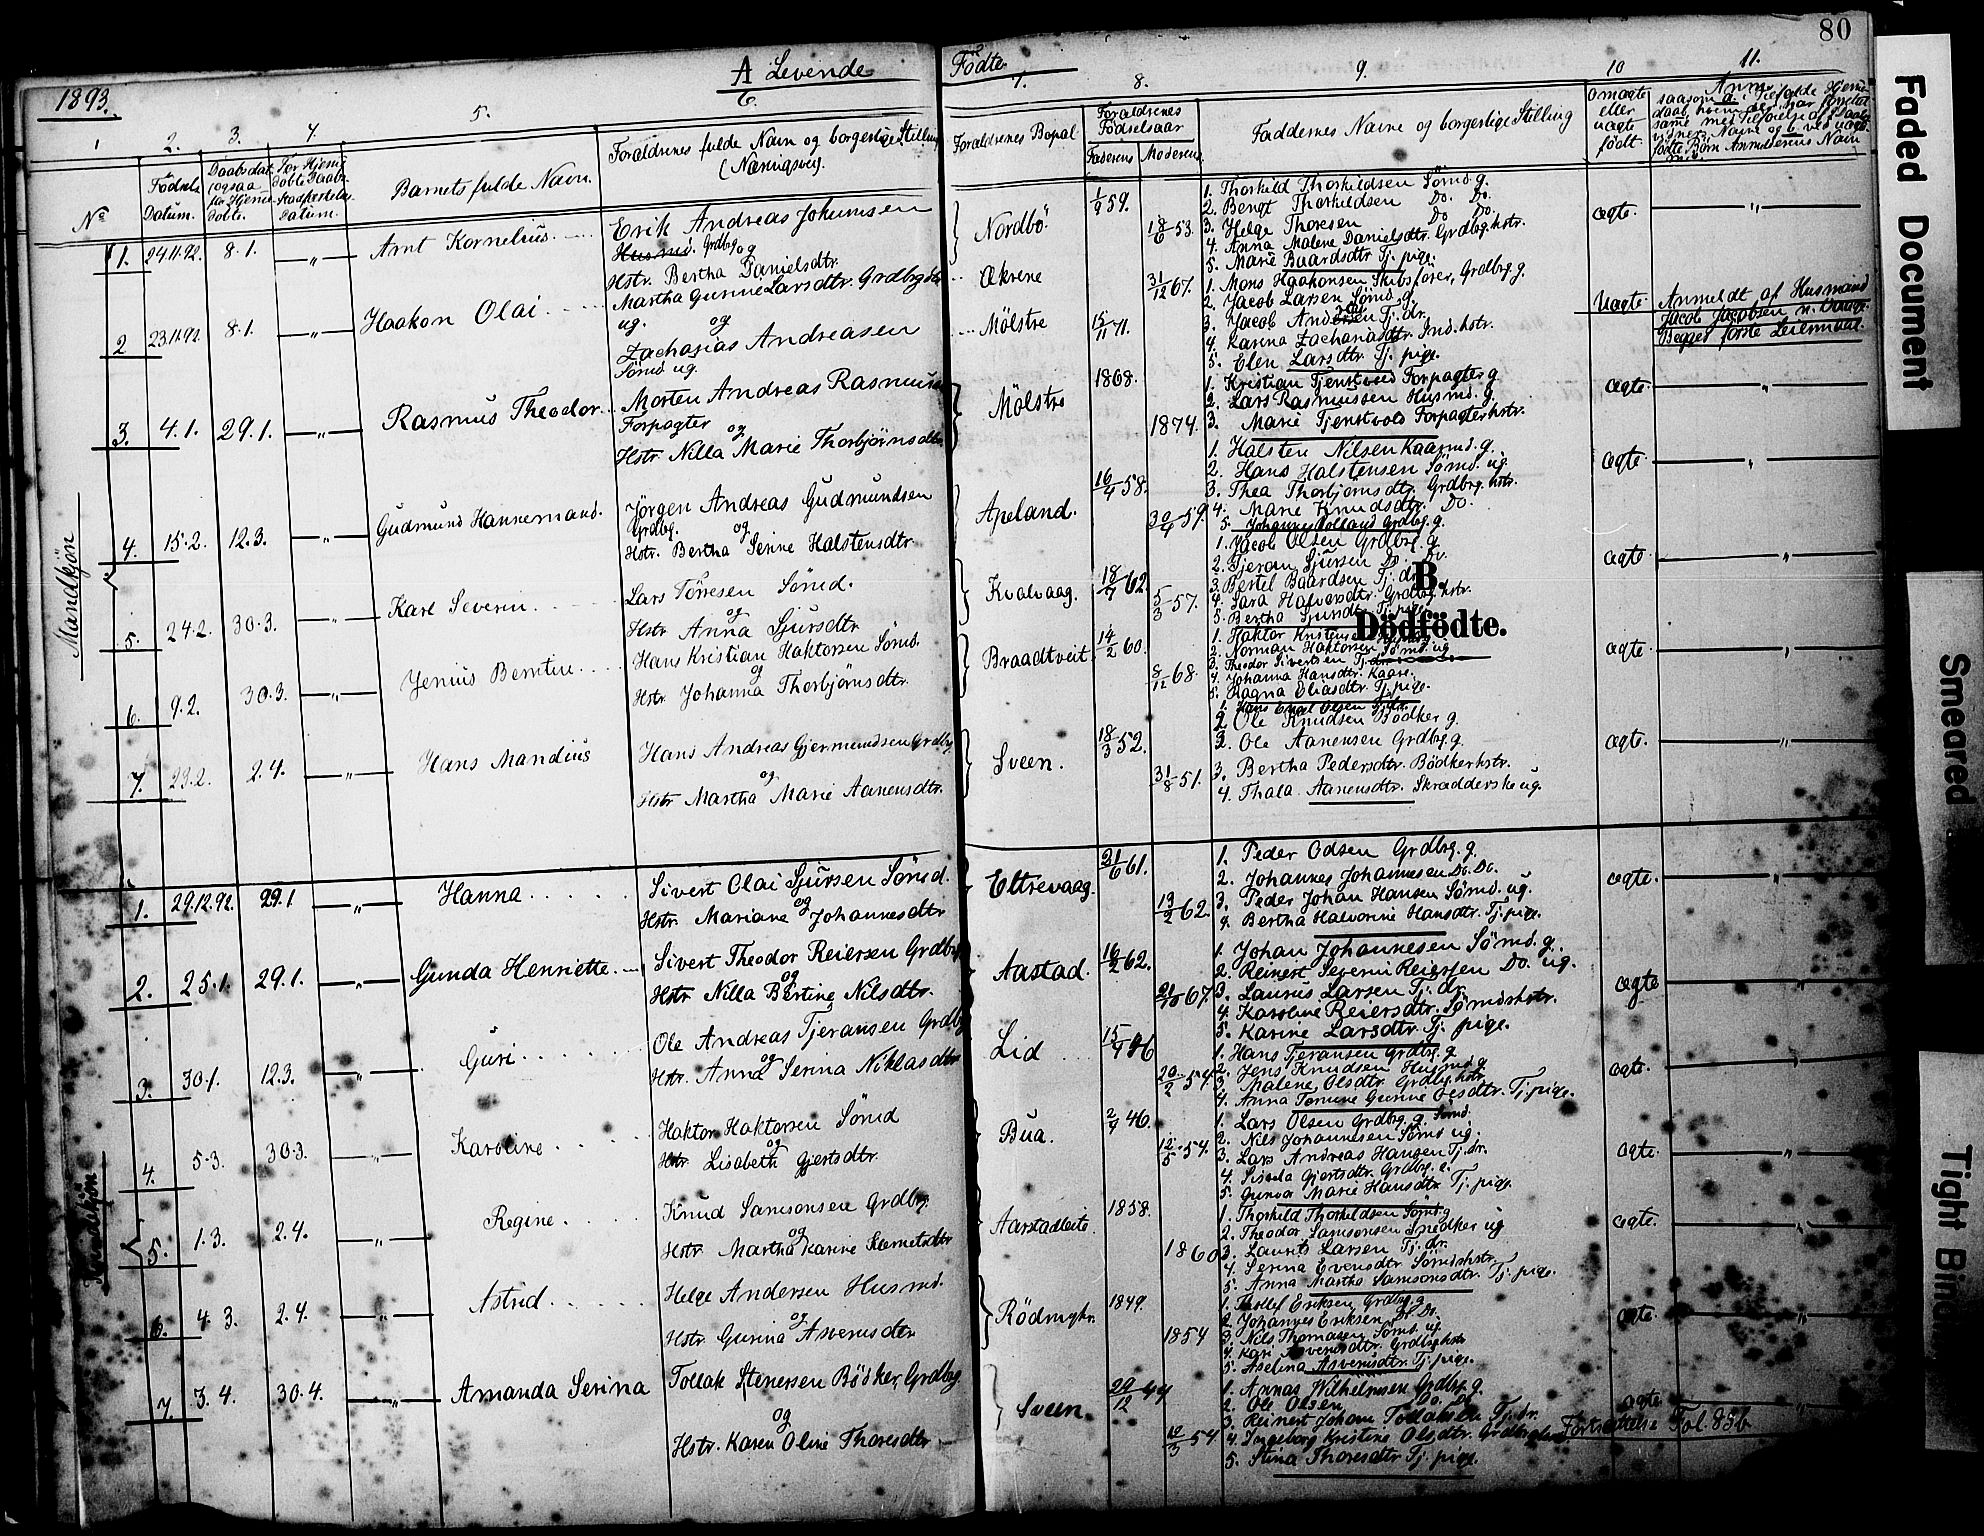 80
1893.
A Levende
Födte
1 2. 3. 4. 5. 6. 7. 8. 9. 10 11.
No
Födsels Datum.
Daabsdat. ogsaa for Hjemmedöbte.
Barnets fulde Navn.
Forældrenes fulde Navn og borgerlige Stilling
(Næringsvei)
Forældrenes Bopæl
Forældrenes Födselsaar
Faderens Moderens
Faddernes Navne og borgerlige Stilling
Om ægte eller uægte födt
Anm.
Mandkjön
1. 24.11.92. 8.1. — „ — Arnt Kornelius.
Erik Andreas Johannesen
Husmd. Grdbrg. og
Hstr. Bertha Danielsdtr.
Nordbö
1/9 59.
18/6 53.
1. Thorkild Thorkildsen Sömd. g.
2. Bengt Thorkildsen Do. Do.
3. Helge Thoresen Do Do.
4. Anna Malene Danielsdtr. Grdbrg.hstr.
5. Marie Baardsdtr Tj. pige.
ægte. — „ —
2 23.11.92. 8.1. — „ — Haakon Olai
Martha Gurine Larsdtr. Grdbrgdtr.
ug. og
Zacharias Andreasen
Sömd ug.
Økrene
Mölstre
31/12 67.
15/11 71.
1. Mons Haakonsen Skibsförer, Grdbrg. g.
2. Jacob Larsen Sömd. g.
3. Jacob Andersen Tj. dr.
4. Karina Zachariasdtr Ind.hstr.
5. Elen Larsdtr. Tj. pige.
Uægte Anmeldt af Husmand
Jacob Jacobsen
Begges förste Leiermaal.
3. 4.1. 29.1. — „ — Rasmus Theodor
Morten Andreas Rasmussen
Forpagter
og
Hstr. Nilla Marie Thorbjörnsdtr.
Mölstre
1868.
1874.
1. Kristian Tjenstvold Forpagter g
2. Lars Rasmussen Husmd. g.
3. Marie Tjenstvold Forpagterhstr.
ægte. „
4. 15.2. 12.3. — „ — Gudmund Hannemand.
Jörgen Andreas Gudmundsen
Grdbrg. og
Hstr. Bertha Serine Halstensdtr
Apeland.
16/4 58.
30/4 59.
1. Halsten Nilsen Kaarmd. g.
2. Hans Halstensen Sömd. ug.
3. Thea Thorbjörnsdtr. Grdbrg.hstr.
4. Marie Knudsdtr. Do.
5. Johannes Lolland Grdbrg. g.
ægte „
5. 24.2. 30.3. — „ — Karl Severin
Lars Tönesen Sömd.
og
Hstr Anna Sjursdtr
Kvalvaag.
18/7 62
5/3 57.
1. Jacob Olsen Grdbrg. g.
2. Tjeran Sjursen Do. Do.
3. Bertel Baardsen Tj. dr.
4. Sara Halvorsdtr. Grdbrg.hstr.
5. Bertha Sjursdtr Tj. pige.
ægte „
B.
Dödfödte.
6. 9.2. 30.3. — „ — Jenius Berntin
Hans Kristian Haktorsen Sömd.
og
Hstr Johanna Thorbjörnsdtr.
Braadtveit
14/2 60.
8/12 68.
1. Haktor Kristensen
2. Norman Haktorsen Sömd. ug
3. Theodor Sivertsen Tj.dr.
4. Johanna Hansdtr. Kaare.
5. Ragna Eliasdtr. Tj. pige.
ægte. „
7. 23.2. 2.4. — „ — Hans Mandius
Hans Andreas Gjermundsen Grdbrg
og
Hstr Martha Marie Aanensdtr.
Sveen.
18/3 52.
31/8 51.
1. Hans Emil Olsen
2. Ole Knudsen Bödker g.
3. Ole Aanensen Grdbrg. g.
3. Bertha Pedersdtr. Bödkerhstr.
4. Thala Aanensdtr. Skrædderske ug.
ægte. „
Kvindekjön
1. 29.12.92. 29.1 — „ — Hanna
Sivert Olai Sjursen Sömd.
og
Hstr. Mariane Johannesdtr
Eltrevaag.
21/6 61.
19/2 62.
1. Peder Odsen Grdbrg. g.
2. Johannes Johannesen Do. Do.
3. Peder Johan Hansen Sömd. ug.
4. Bertha Halvorine Hansdtr. Tj. pige.
ægte. „
2. 25.1. 29.1. — „ — Gunda Henriette
Sivert Theodor Reiersen Grdbrg
og
Hstr Nilla Bertine Nilsdtr.
Aastad.
16/2 62.
21/10 67.
1. Johan Johannesen Sömd. g.
2. Reinert Severin Reiersen Do. ug.
3. Laurits Larsen Tj. dr.
4. Karoline Reiersdtr. Sömdshstr.
5. Karine Larsdtr. Tj. pige.
ægte „
3. 30.1. 12.3. — „ — Guri
Ole Andreas Tjeransen Grdbrg
og
Hstr. Anna Serina Niklasdtr
Lid
20/2 54.
1. Hans Tjeransen Grdbrg. g
2. Jens Knudsen Husmd g
3. Malene Olsdtr. Grdbrg.hstr.
4. Anna Tomine Gurine Olsdtr. Tj. pige.
ægte. „
4. 5.3. 30.3. — „ — Karoline
Haktor Haktorsen Sömd
og
Hstr Lisabeth Gjertsdtr.
Bua.
2/4 46.
12/5 54.
1. Lars Olsen Grdbrg. g. Sömd.
2. Nils Johannesen Sömd ug.
3. Lars Andreas Hansen Tj. dr.
4. Siselia Gjertsdtr. Grdbrg. e.
5. Gunva Marie Hansdtr. Tj. pige.
ægte. „
5. 1.3. 2.4. — „ — Regine.
Knud Samsonsen Grdbrg.
og
Hstr. Martha Karine Klemetsdtr
Aarstadleite
1858.
1860
1. Thorkild Thorkildsen Sömd. g
2. Theodor Samsonsen Snedker ug
3. Laurits Larsen Tj. dr.
4. Serina Evensdtr Sömdshstr.
5. Anna Martha Samsonsdtr. Tj. pige.
ægte. „
6. 4.3. 2.4. — „ — Astrid
Helge Andersen Husmd.
og
Hstr Gurina Asvensdtr
Rödmyhr.
1849.
1854
1. Thollef Eriksen Grdbrg. g
2. Johannes Eriksen Do Do.
3. Nils Thomasen Sömd. ug.
4. Kari Asvensdtr. Grdbrg.hstr
5. Aselina Asvensdtr. Tj. pige.
ægte. „
7. 3.4. 30.4. — „ — Amanda Serina
Tollak Stenersen Bödker, Grdbrg
og
Hstr. Karen Oline Thoresdtr
Sveen.
29/12 44
10/3 54
1. Annas Wilhelmsen Grdbrg. g.
2. Ole Olsen Do. Do.
3. Reinert Johan Tollaksen Tj. dr.
4. Ingeborg Kristine Olsdtr.
5. Stina Thoresdtr Tj. pige.
ægte „
Fortsættelse Fol. 83b
Faded Document
Smeared
Tight Bind